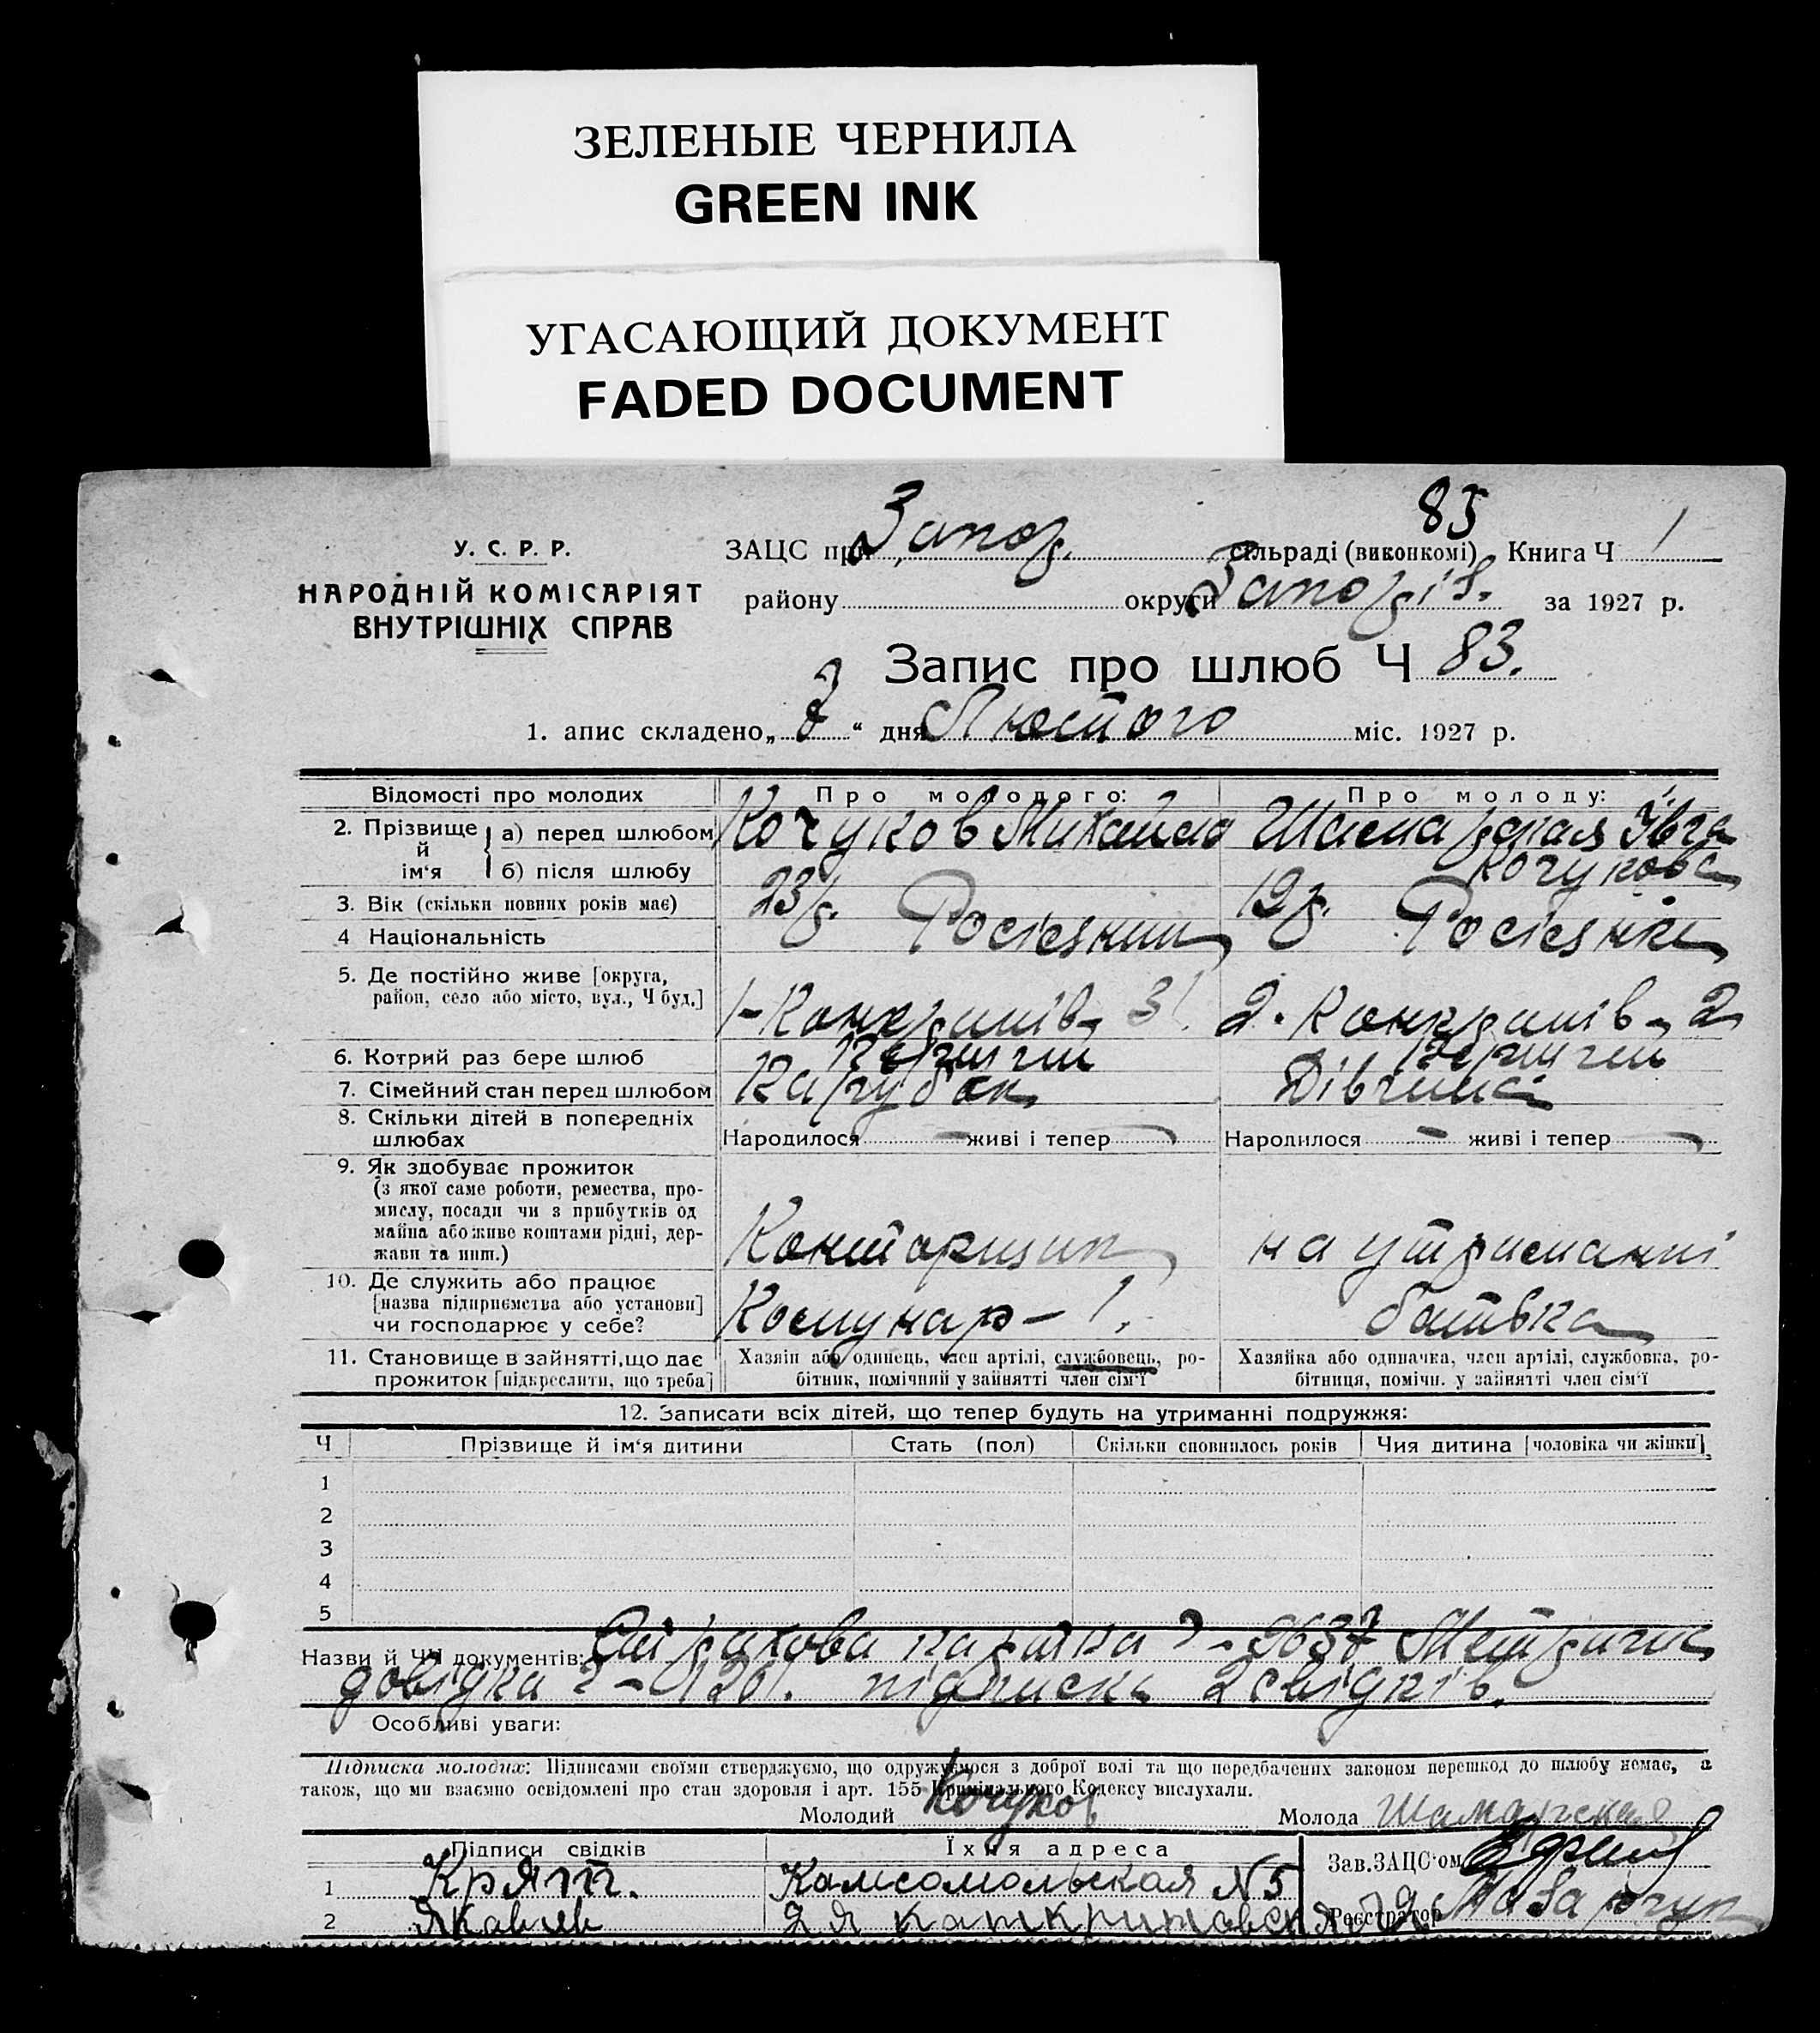 ЗЕЛЕНЫЕ ЧЕРНИЛА
GREEN INK
УГАСАЮЩИЙ ДОКУМЕНТ
FADED DOCUMENT
83
У. С. Р. Р.
НАРОДНІЙ КОМІСАРІЯТ
ВНУТРІШНІХ СПРАВ
ЗАЦС при Запор. сільраді (виконкомі) Книга Ч 1
району округи Запоріз. за 1927 р.
Запис про шлюб Ч 83.
1. апис складено „ “ дня Лютого міс. 1927 р.
Відомості про молодих Про молодого: Про молоду:
2. Прізвище й ім‘я а) перед шлюбом Кочуков Михайло Івга
б) після шлюбу Кочукова
3. Вік (скільки повних років має) 23 р. 19 р.
4 Національність Росіянин Росіянка
5. Де постійно живе [округа,
район, село або місто, вул., Ч буд.] 31 2
6. Котрий раз бере шлюб Перший Перший
7. Сімейний стан перед шлюбом Парубок Дівчина
8. Скільки дітей в попередніх
шлюбах Народилося — живі і тепер — Народилося — живі і тепер —
9. Як здобуває прожиток
(з якої саме роботи, ремества, про-
мислу, посади чи з прибутків од
майна або живе коштами рідні, дер-
жави та инш.) Конторщик на утриманні
10. Де служить або працює
[назва підприємства або установи]
чи господарює у себе? Комунар – 1. батька
11. Становище в зайнятті, що дає
прожиток [підкреслити, що треба]
Хазяїн або одинець, член артілі, службовець, ро-
бітник, помічний у зайнятті член сім‘ї
Хазяйка або одиначка, член артілі, службовка, ро-
бітниця, помічн. у зайнятті член сім‘ї
12. Записати всіх дітей, що тепер будуть на утриманні подружжя:
Ч Прізвище й ім‘я дитини Стать (пол) Скільки сповнилось років Чия дитина [чоловіка чи жінки]
1
2
3
4
5
Назви й ЧЧ документів: Страхова картка
довідка підписка 2 свідків.
Особливі уваги:
Підписка молодих: Підписами своїми стверджуємо, що одружуємося з доброї волі та що передбачених законом перешкод до шлюбу немає, а
також, що ми взаємно освідомлені про стан здоровля і арт. 155 Кримінального Кодексу вислухали.
Молодий Кочуков Молода
Підписи свідків Їхня адреса Зав. ЗАЦС‘ом
1 Комсомольская N 5
2 Реєстратор